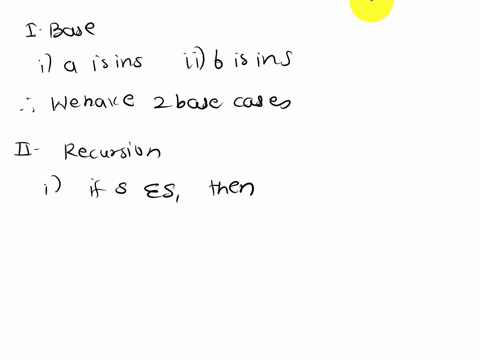 I. Base
i) a is in s ii) b is in s
∴ We have 2 base cases
II- Recursion
i) if s ∈ S, then